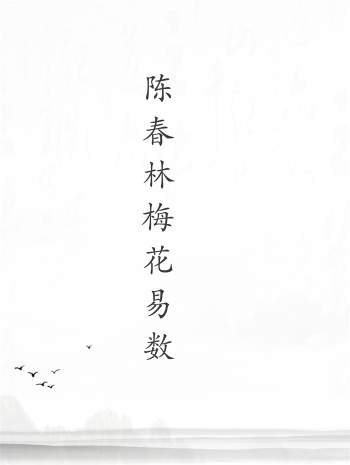 陈春林梅花易数